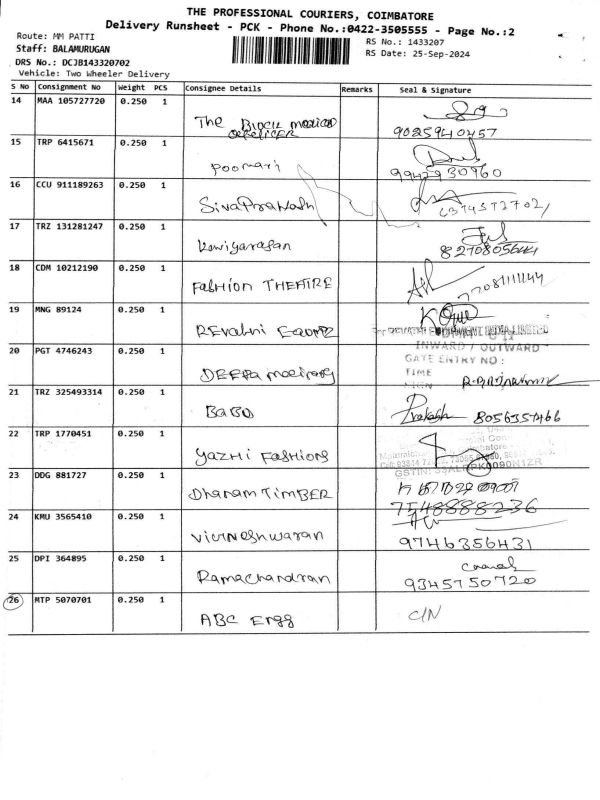 THE PROFESSIONAL COURIERS, COIMBATORE
Delivery Runsheet - PCK - Phone No.:0422-3505555 - Page No.:2
Route: MM PATTI
RS No.: 1433207
Staff: BALAMURUGAN
RS Date: 25-Sep-2024
DRS No.: DCJB143320702
Vehicle: Two Wheeler Delivery
S No Consignment No Weight PCS Consignee Details Remarks Seal & Signature
14 MAA 105727720 0.250 1
The Block medical
9025940457
15 TRP 6415671 0.250 1
Poomari
9942930960
16 CCU 911189263 0.250 1
SivaPrakash
6374572702
17 TRZ 131281247 0.250 1
Kaviyarasan
18 CDM 10212190 0.250 1
Fashion THEATRE
19 MNG 89124 0.250 1
REvathi Eqump
INWARD / OUTWARD
20 PGT 4746243 0.250 1
GATE ENTRY NO :
TIME
DEEPA
21 TRZ 325493314 0.250 1
BABU
Prakash 8056357466
22 TRP 1770451 0.250 1
Yazhi FaSHionS
23 DDG 881727 0.250 1
Dharam TimBER
7548888236
24 KMU 3565410 0.250 1
VigNeshwaran
9746356431
25 DPI 364895 0.250 1
Ramachandran
9345750720
26 MTP 5070701 0.250 1
ABC Engg
C/N